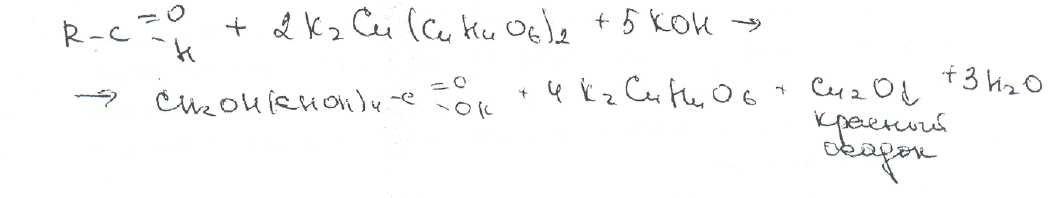 R-C =O -H + 2K₂Cu(C₄H₄O₆)₂ + 5KOH →
→ CH₂OH(CHOH)₄-C =O -OK + 4K₂C₄H₄O₆ + Cu₂O↓ + 3H₂O
красный
осадок